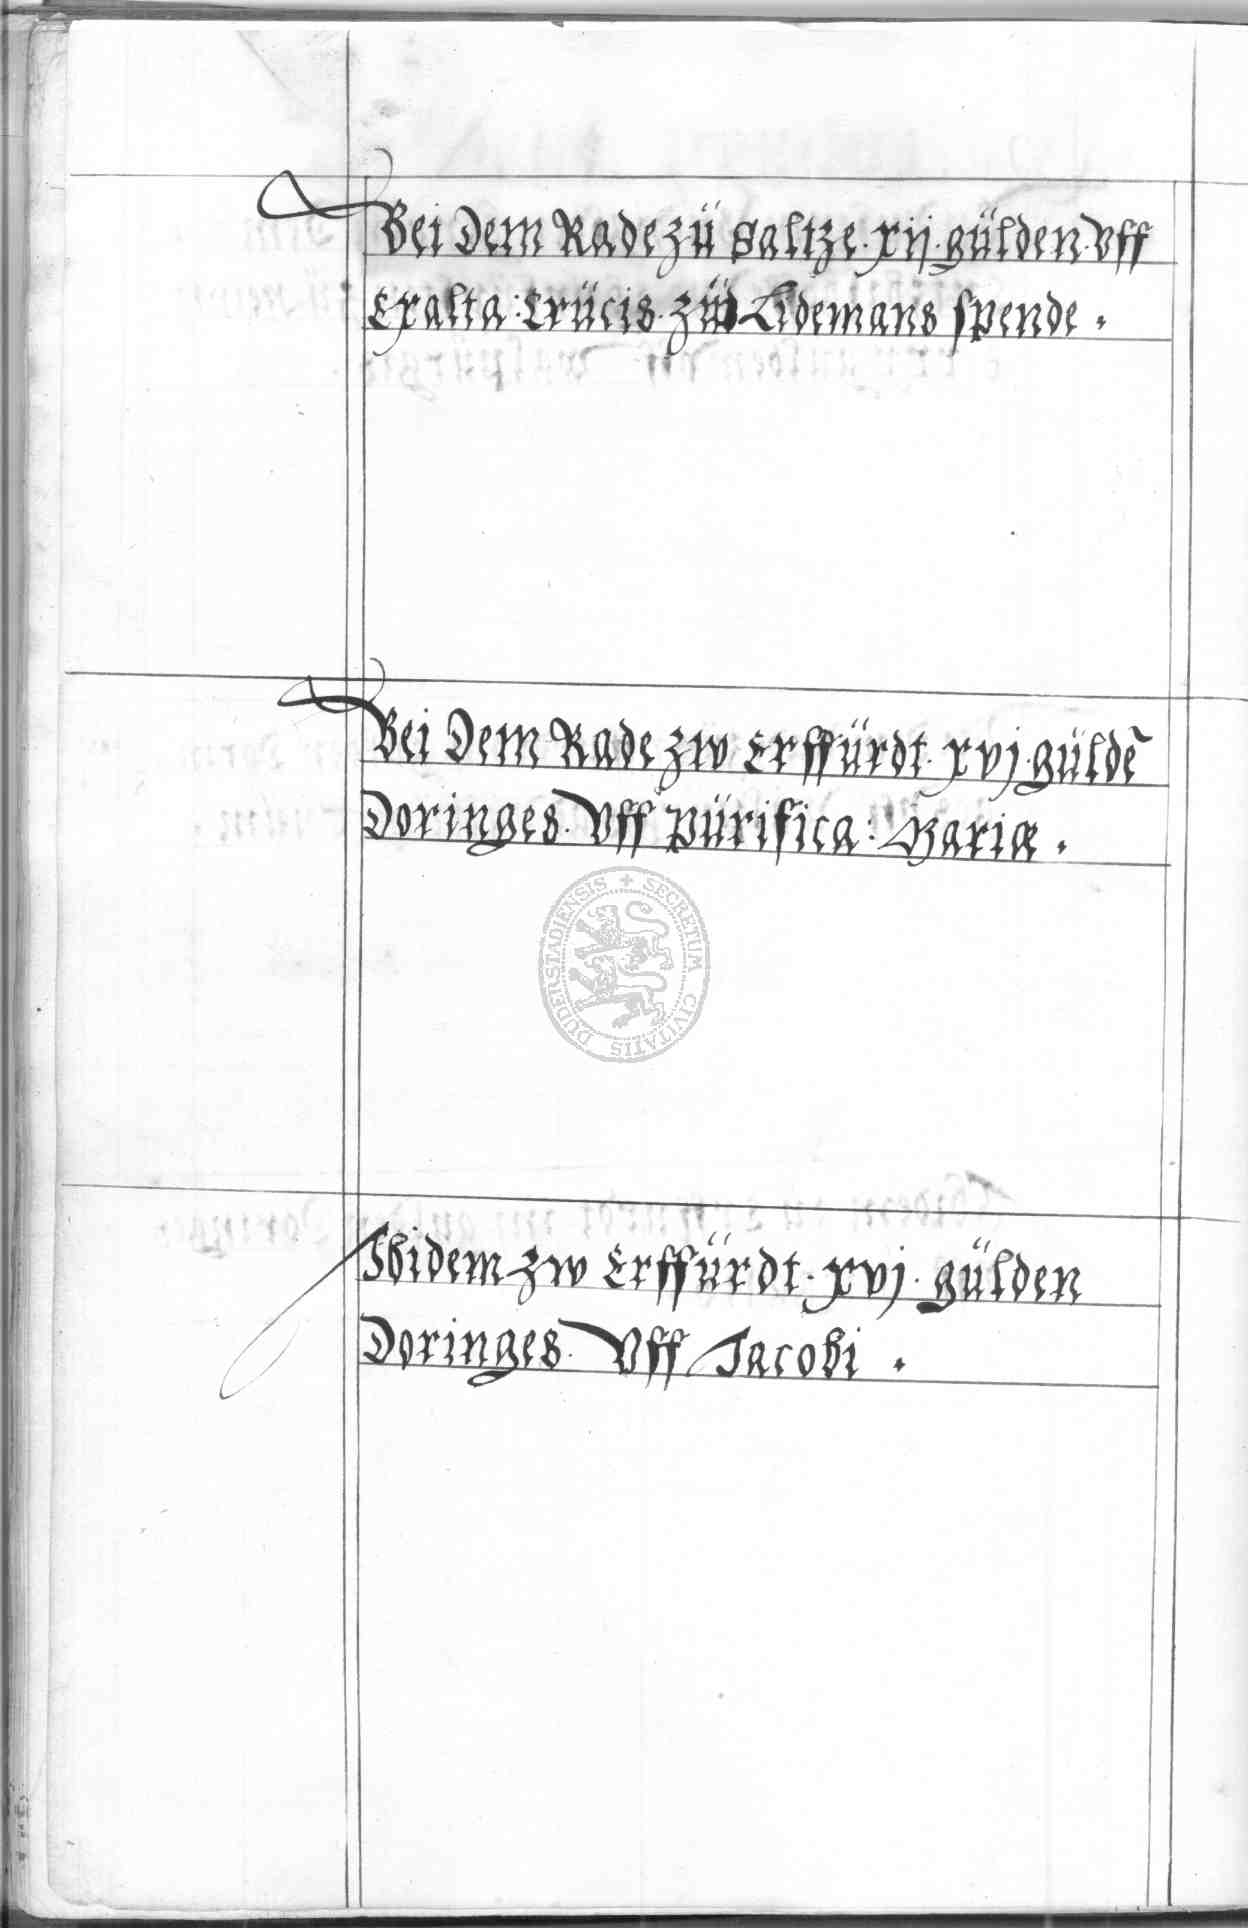 Bei Dem Rade zü Saltze · xij · gülden · Vff
Exalta : Crücis · zü Lidemans spende ·
Bei Dem Rade zw Erffürdt · xvj · güldē
Doringes · Vff Pürifica : Mariæ ·
SECRETUM CIVITATIS DUDERSTADIENSIS
Ibidem zw Erffürdt · xvj · gülden
Doringes · Vff Jacobi ·